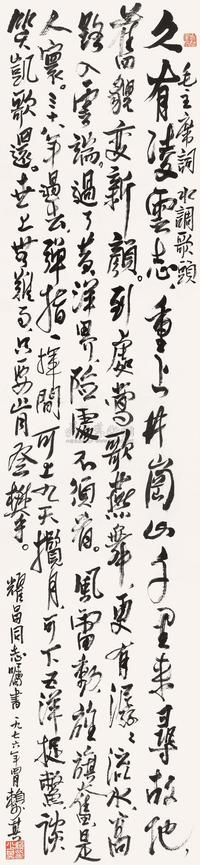 毛主席詞 水調歌頭
久有凌雲志，重上井崗山。千里来尋故地，
舊貌变新顏。到處鶯歌燕舞，更有潺潺流水，高
路入雲端。過了黄洋界，險處不須看。風雷動，旌旗奮，是
人寰。三十八年過去，彈指一揮間。可上九天攬月，可下五洋捉鱉，談
笑凱歌還。世上無難事，只要肯登攀。
同志囑書 一九七六年